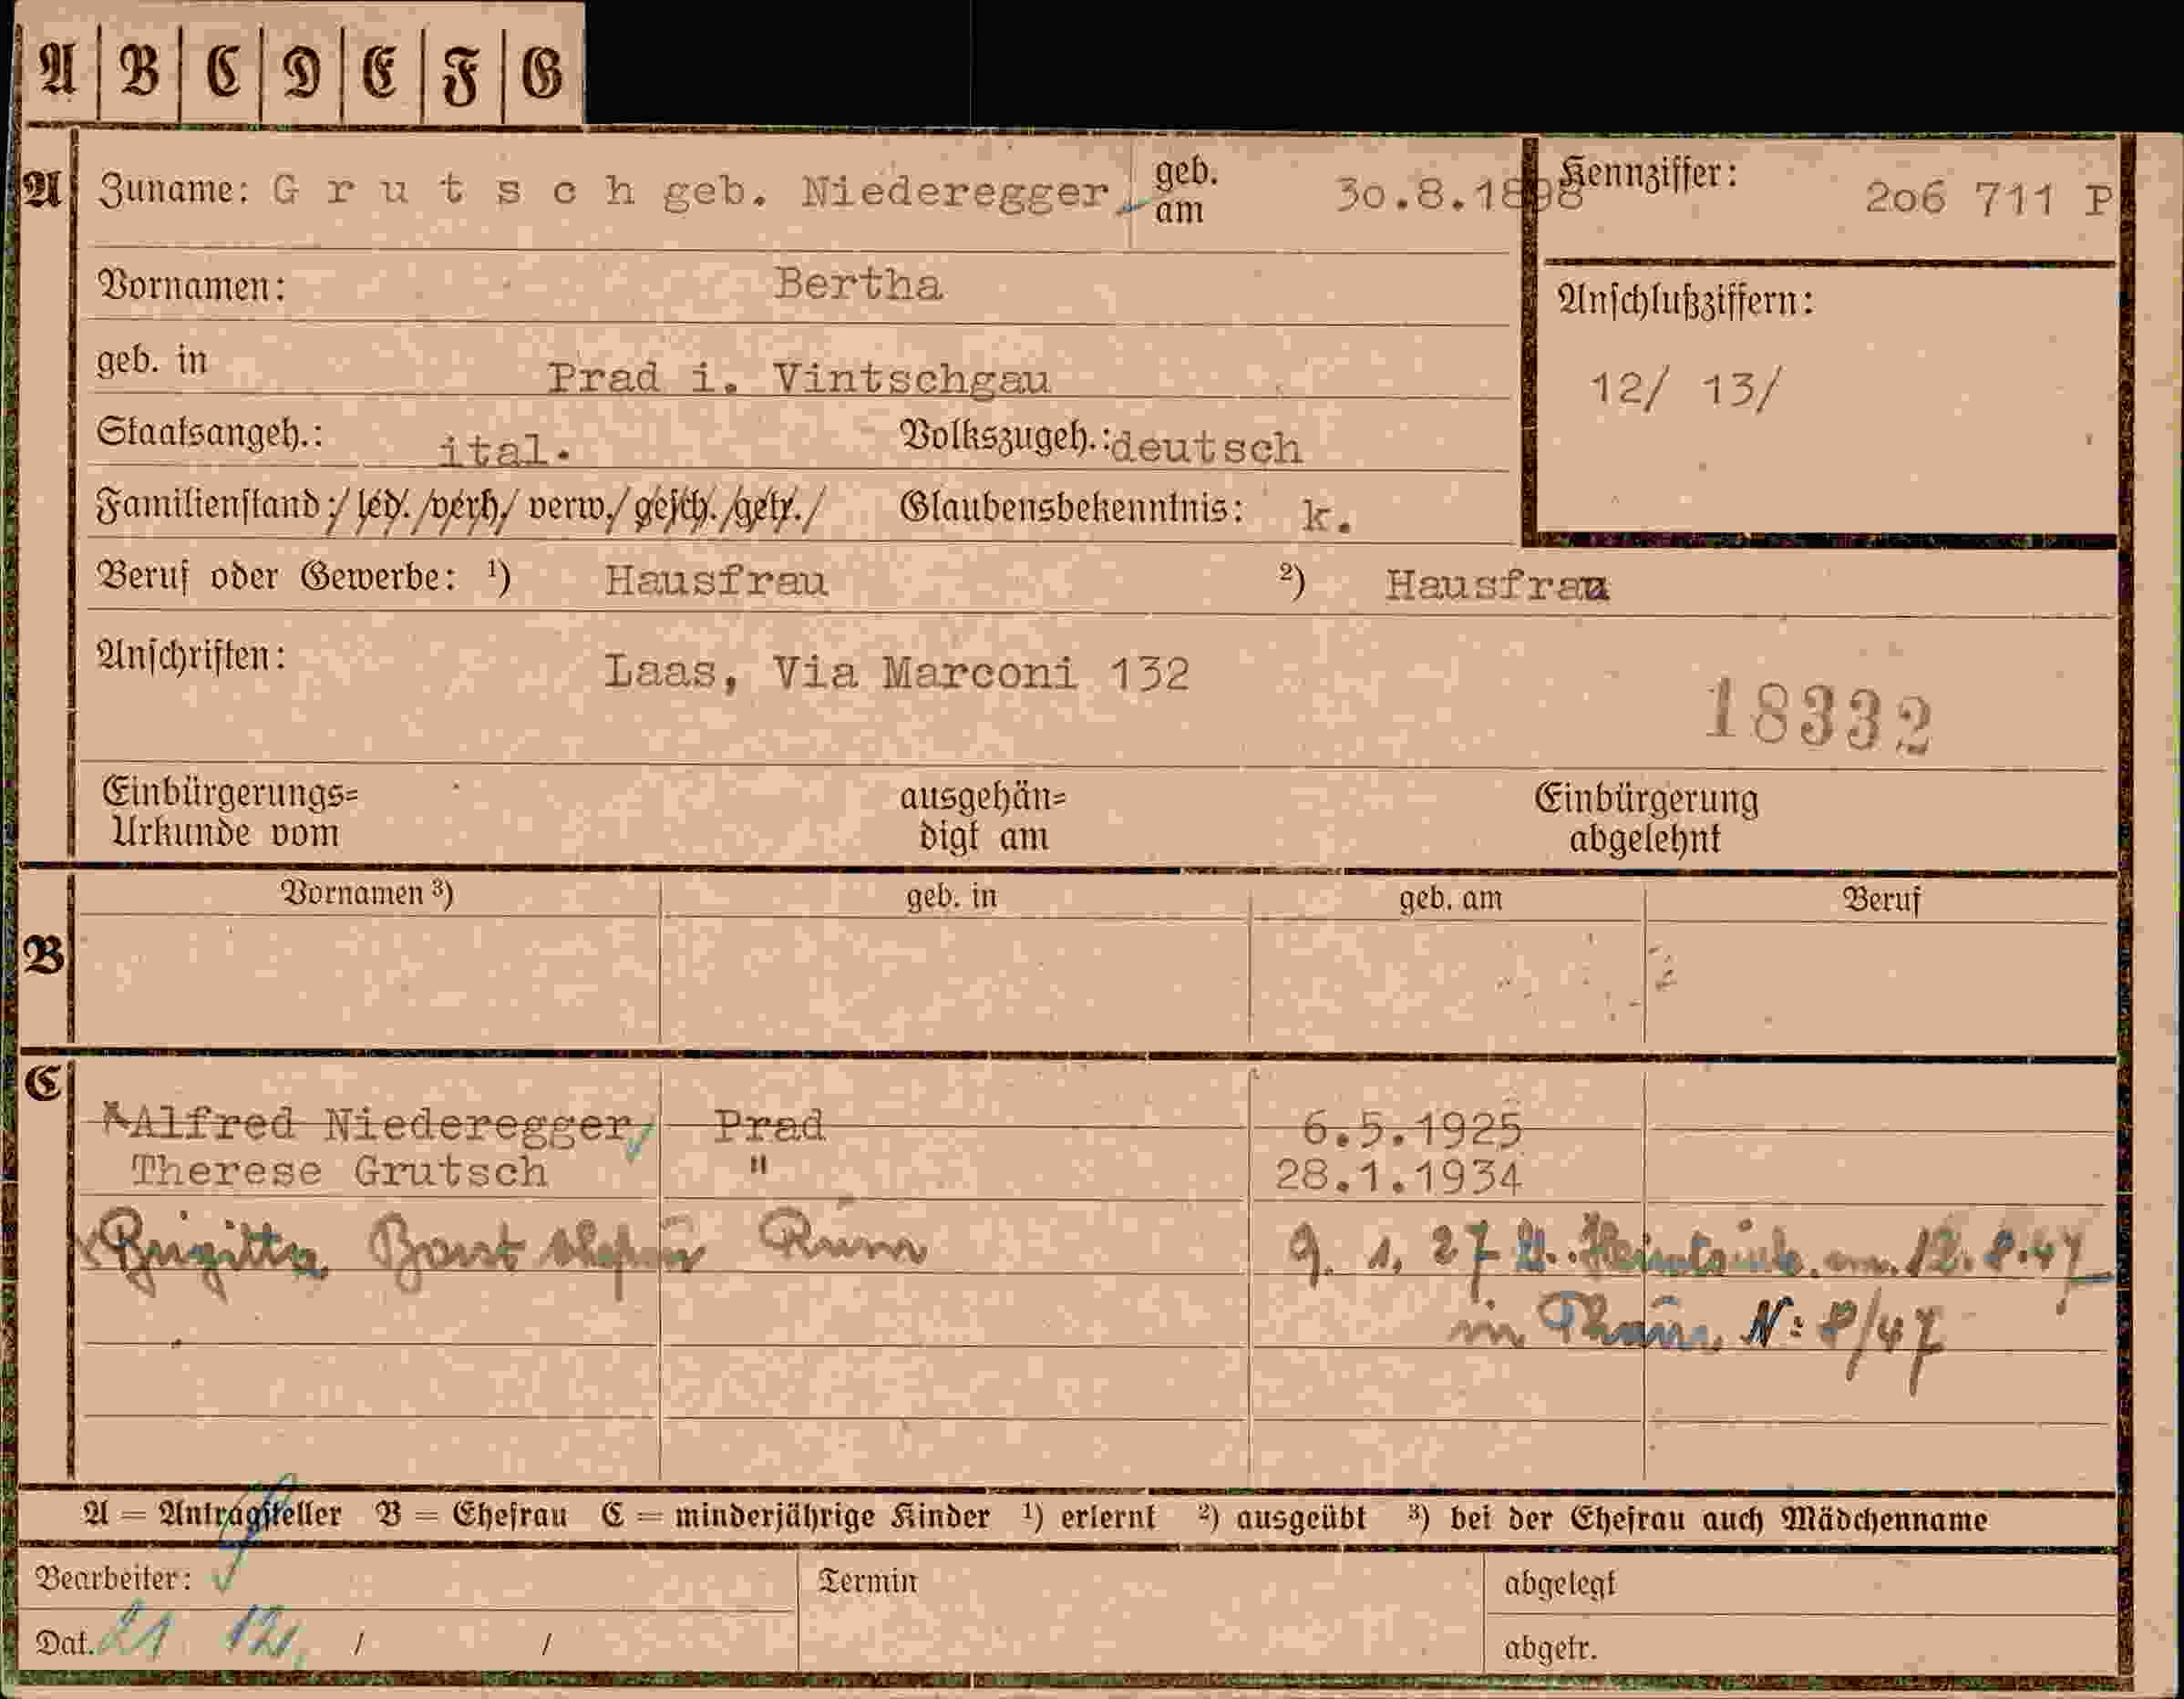 A B C D E F G
A Zuname: G r u t s c h geb. Niederegger geb. am 3o.8.1898 Kennziffer: 2o6 711 P
Vornamen: Bertha
Anschlußziffern:
geb. in Prad i. Vintschgau
12/ 13/
Staatsangeh.: ital. Volkszugeh.: deutsch
Familienstand:/ led./verh/ verw./ gesch./getr./ Glaubensbekenntnis: k.
Beruf oder Gewerbe: ¹) Hausfrau ²) Hausfrau
Anschriften: Laas, Via Marconi 132
18332
Einbürgerungs=
Urkunde vom
ausgehän=
digt am
Einbürgerung
abgelehnt
Vornamen ³) geb. in geb. am Beruf
B
C
Alfred Niederegger Prad 6.5.1925
Therese Grutsch " 28.1.1934
Brigitta 9. 1. 27 am 12. 8.47
in N: 8/47
A = Antragsteller B = Ehefrau C = minderjährige Kinder ¹) erlernt ²) ausgeübt ³) bei der Ehefrau auch Mädchenname
Bearbeiter: Termin abgelegt
Dat. 21 12. / / abgetr.